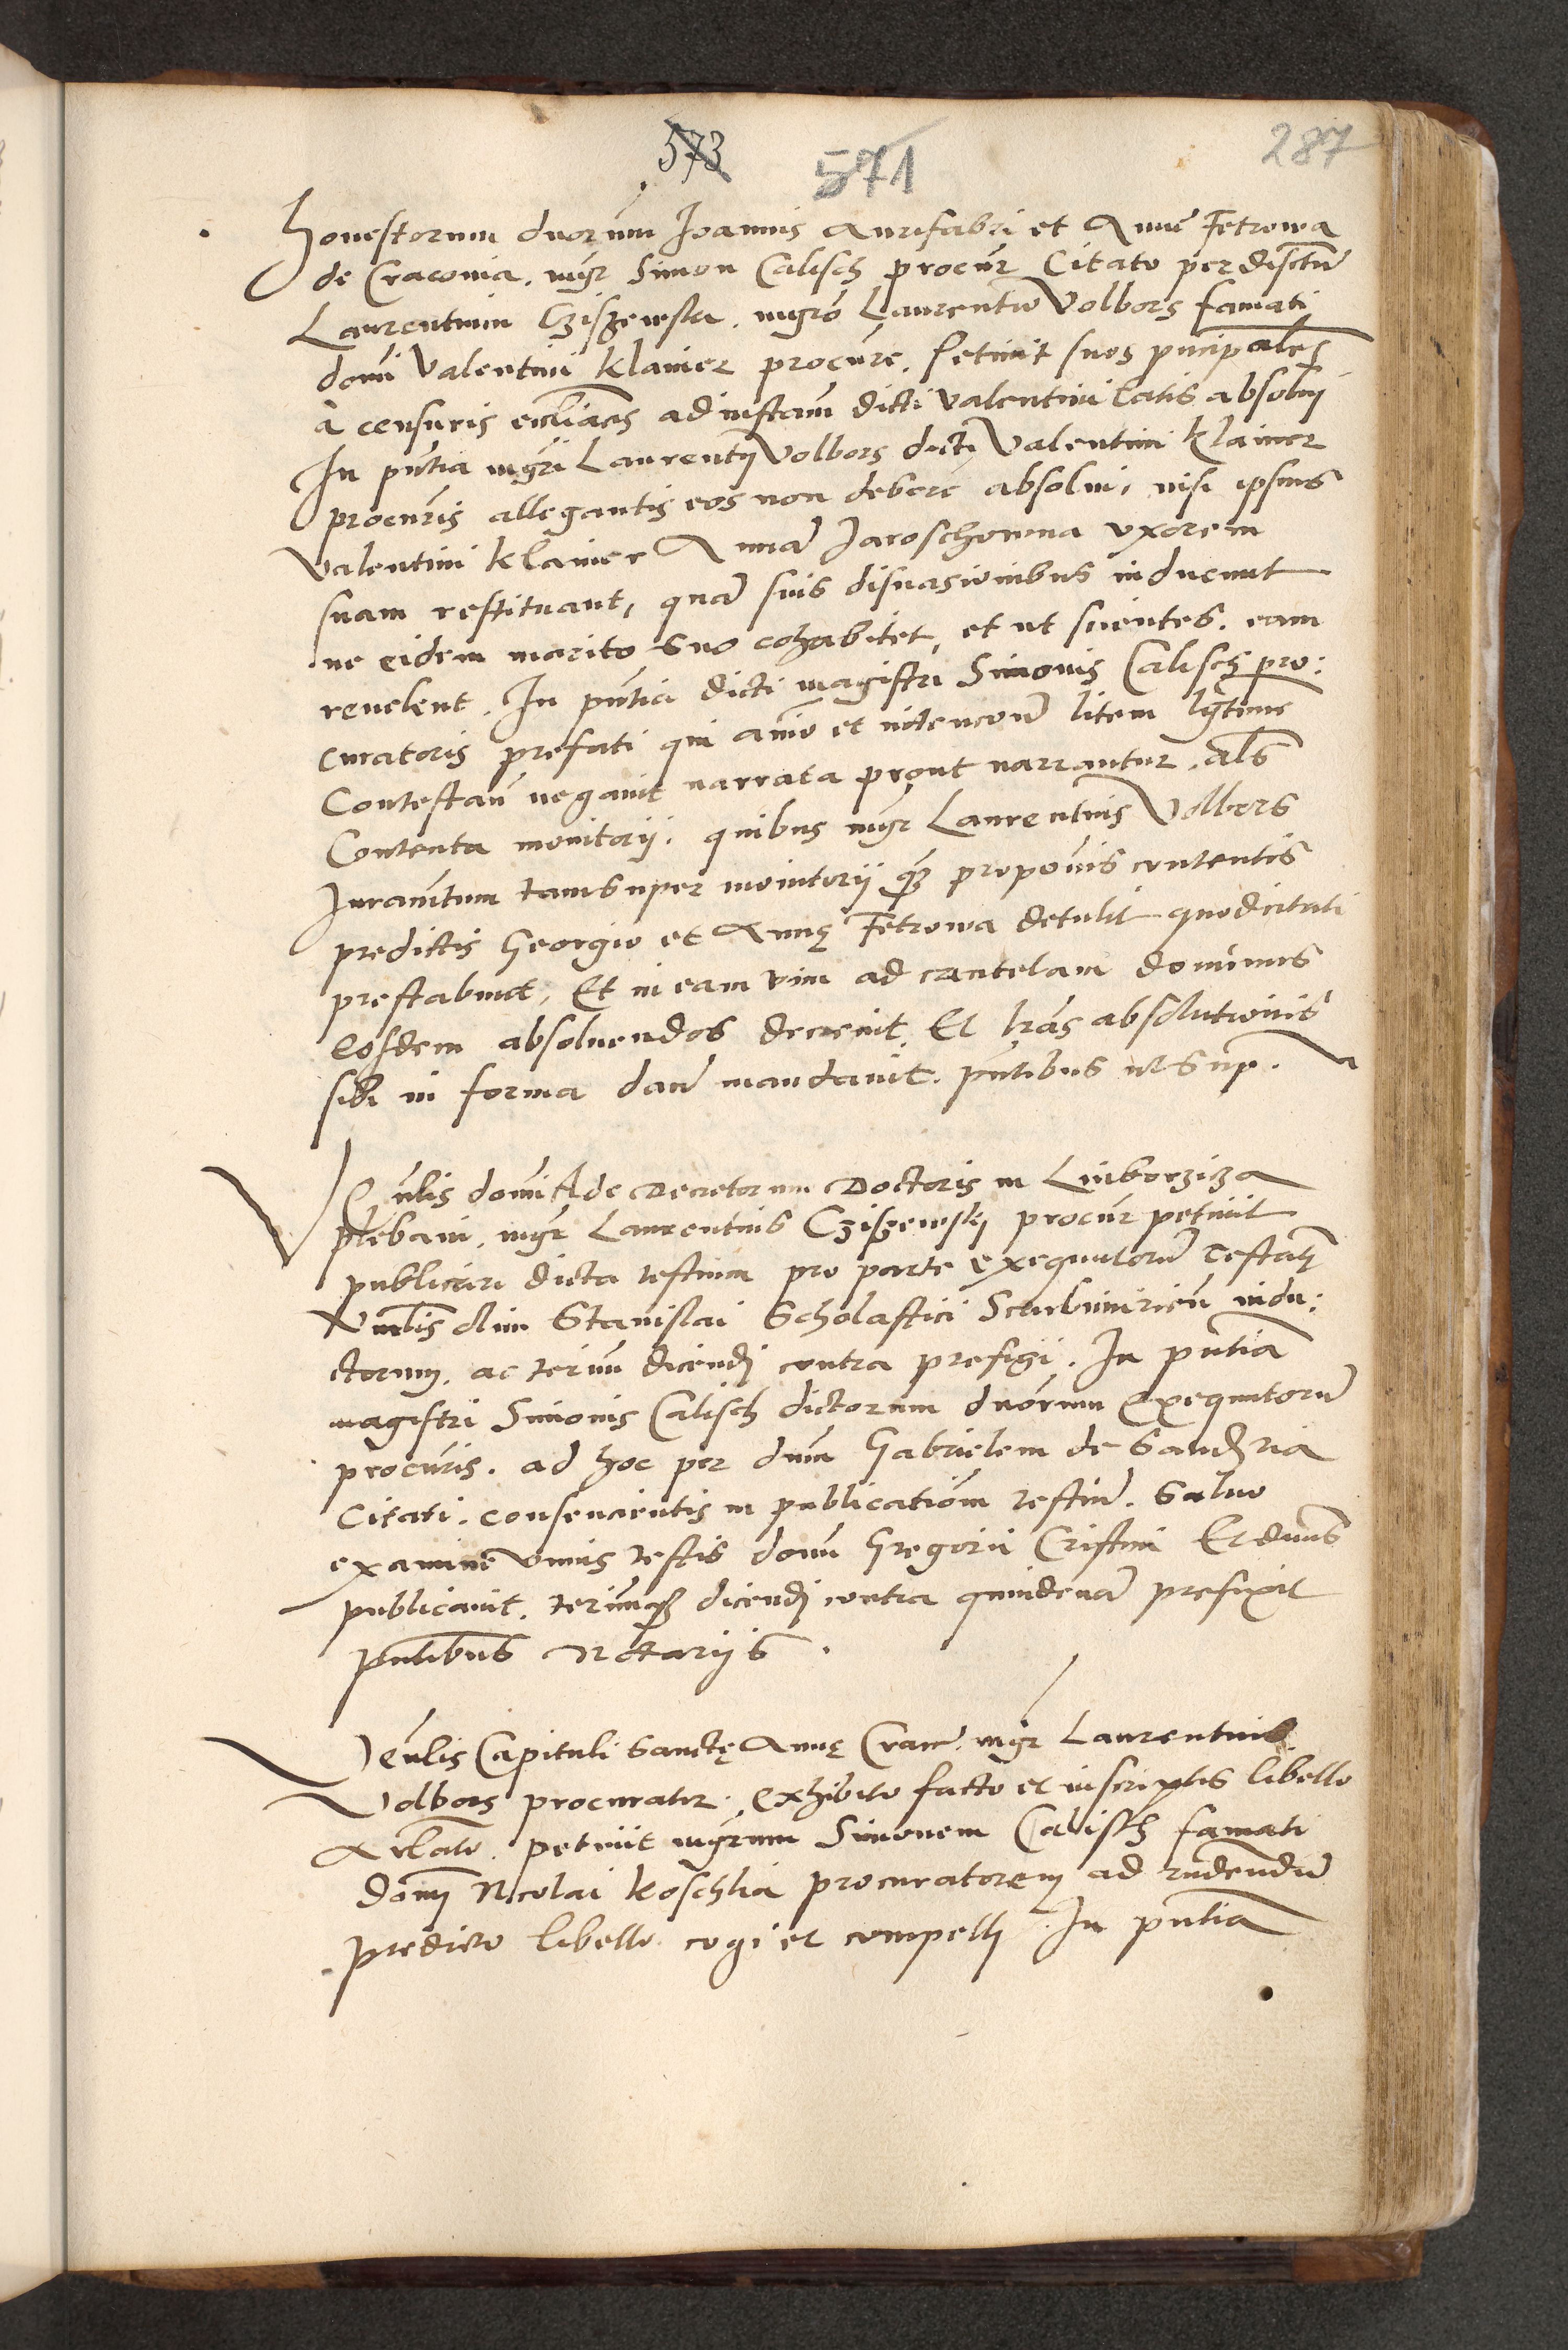 573
571
287
Honestorum duorum Ioannis Aurifabri et Anne Fetrowa
de Cracovia. mgr Simon Calisch procur Citato per discrtu
Laurentium Cziszewski. mgro Laurentio Volbors famati
domi Valentini Klainer procure. Petiuit suos pncipales
a censuris ecclianis ad instam dicti Valentini latis absolui
In pntia mgri Laurentij Volbors dicti Valentini Klainer
procuris allegantis eos non debere absolui, nisi ipsius
Valentini Klainer Anna Jaroschowna vxorem
suam restituant, qua suis disuasionibus inducunt
ne eidem marito suo cohabitet, et ut scientes. eam
reuelent. In pntia dicti magistri Simonis Calisch pro:
curatoris prefati qui animo et intencone litem lgtime
Contestan negauit narrata prout narrantur. als
Contenta monitorij. quibus mgr Laurentius Volbors
Juramtum tam super monitorij qz propositis contentis
predictis Georgio et Annę Fetrowa detulit quod citati
prestabunt, Et in eam vim ad cautelam dominus
eosdem absoluendos decreuit. Et lras absolutionis
sibi in forma dari mandauit. pntibus ut sup.
Venlis domi A de Decretorum Doctoris in Luiborzicza
plebani. mgr Laurentius Cziszewskj procur petiuit
publicari dicta testium pro parte exequutoru Testati
Venlis olim Stanislai Scholastici Scarbimirien indu:
ctorum. ac termi dicendj contra prefigi. In pntia
magistri Simonis Calisch dictorum duorum exequutoru
procuris. ad hoc per dnm Gabrielem de Sandzria
Citati. consencientis in publicationem testiu. Saluo
examine vnius testis domi Gregorii Cristini Et dnus
publicauit. termumqz dicendj contra quindena prefixit
pntibus Notarijs.
Venlis Capituli Sanctę Annę Craco. mgr Laurentius
Volbors procurator. exhibito facto et in scriptis libello
Articlato. petiuit mgrum Simonem Calisch famati
domi Nicolai Koschlia procuratorem ad rndendu
predicto libello cogi et compelli. In pntia